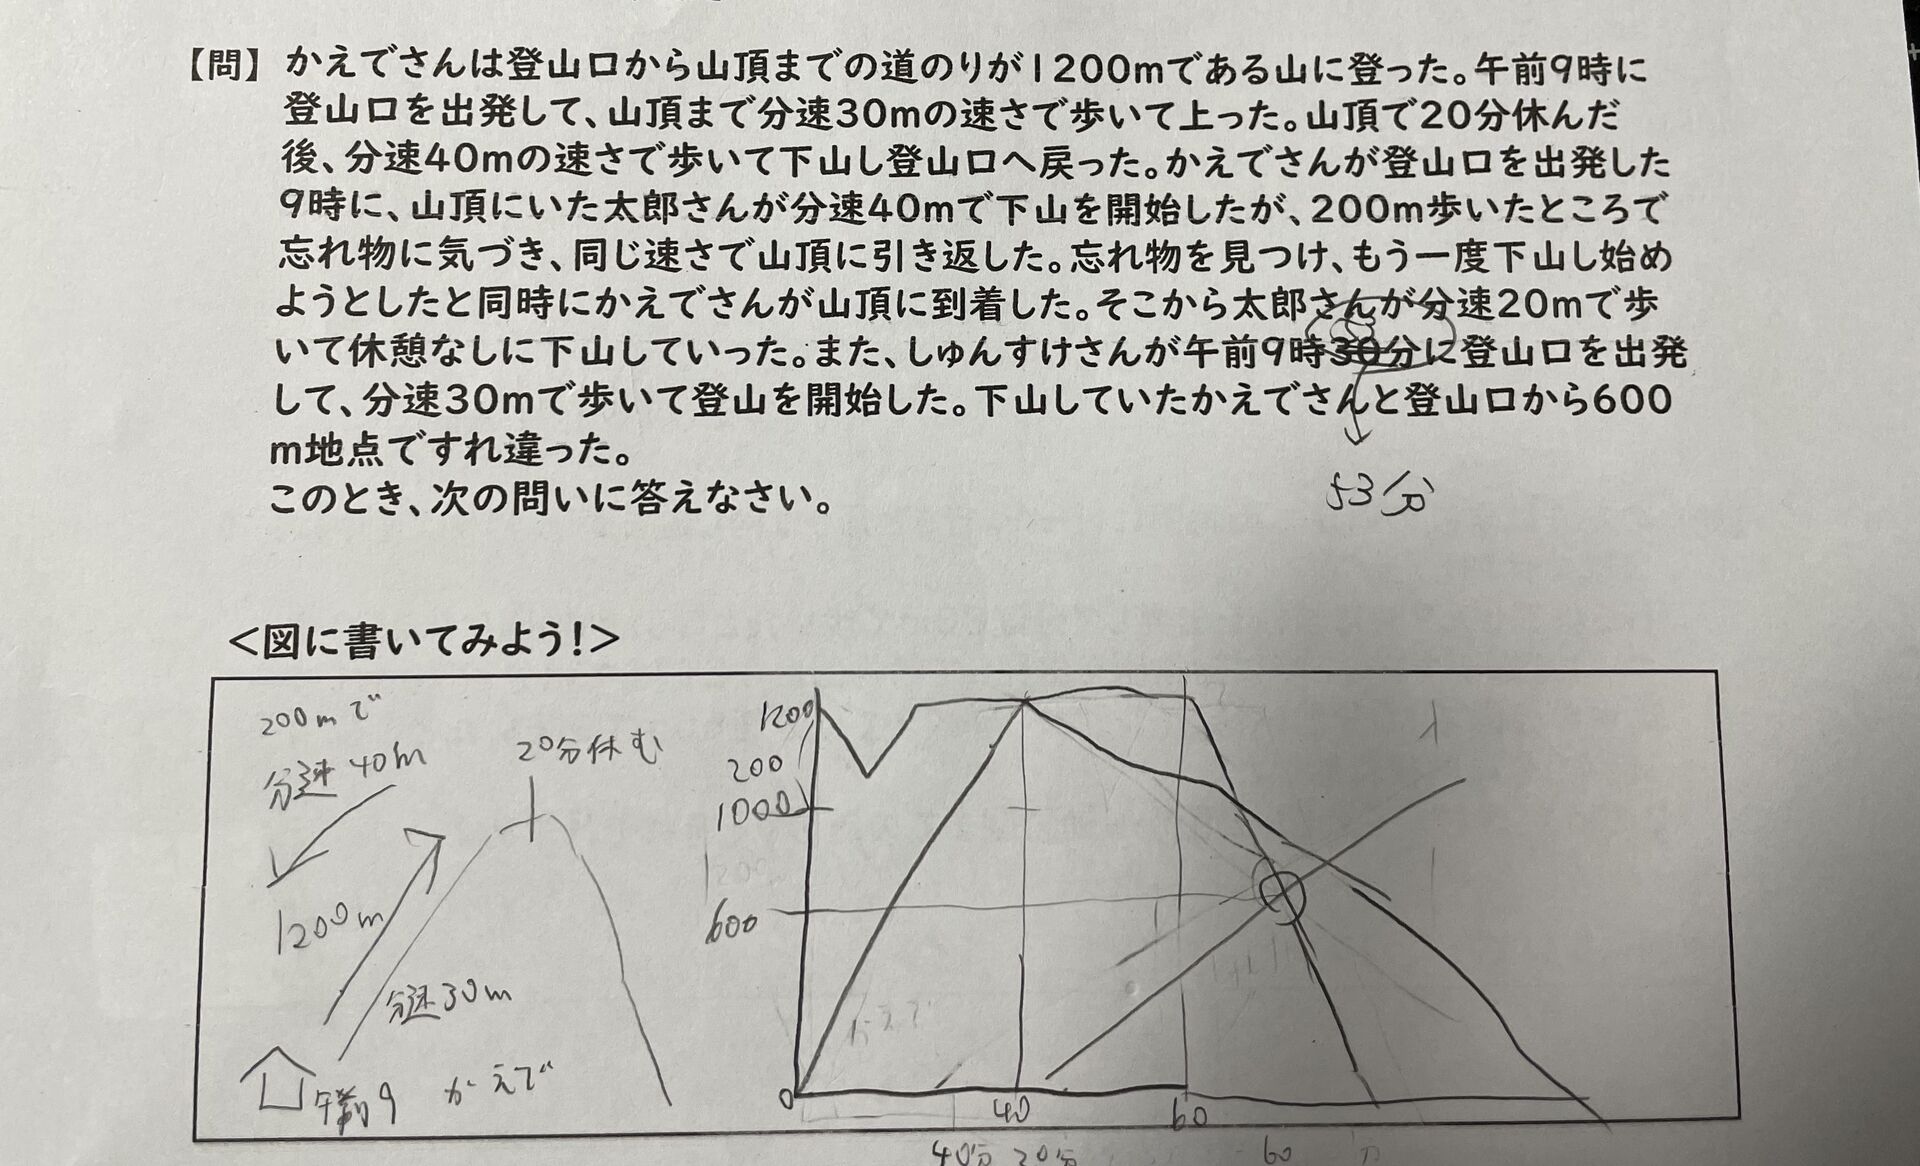 【問】 かえでさんは登山口から山頂までの道のりが1200mである山に登った。午前9時に
登山口を出発して、山頂まで分速30mの速さで歩いて上った。山頂で20分休んだ
後、分速40mの速さで歩いて下山し登山口へ戻った。かえでさんが登山口を出発した
9時に、山頂にいた太郎さんが分速40mで下山を開始したが、200m歩いたところで
忘れ物に気づき、同じ速さで山頂に引き返した。忘れ物を見つけ、もう一度下山し始め
ようとしたと同時にかえでさんが山頂に到着した。そこから太郎さんが分速20mで歩
いて休憩なしに下山していった。また、しゅんすけさんが午前9時30分に登山口を出発
して、分速30mで歩いて登山を開始した。下山していたかえでさんと登山口から600
m地点ですれ違った。
このとき、次の問いに答えなさい。
53分
<図に書いてみよう!>
200mで
分速40m
20分休む
1200m
分速30m
午前9 かえで
1200
200
1000
600
かえで
0 40 60
40分 20分 60